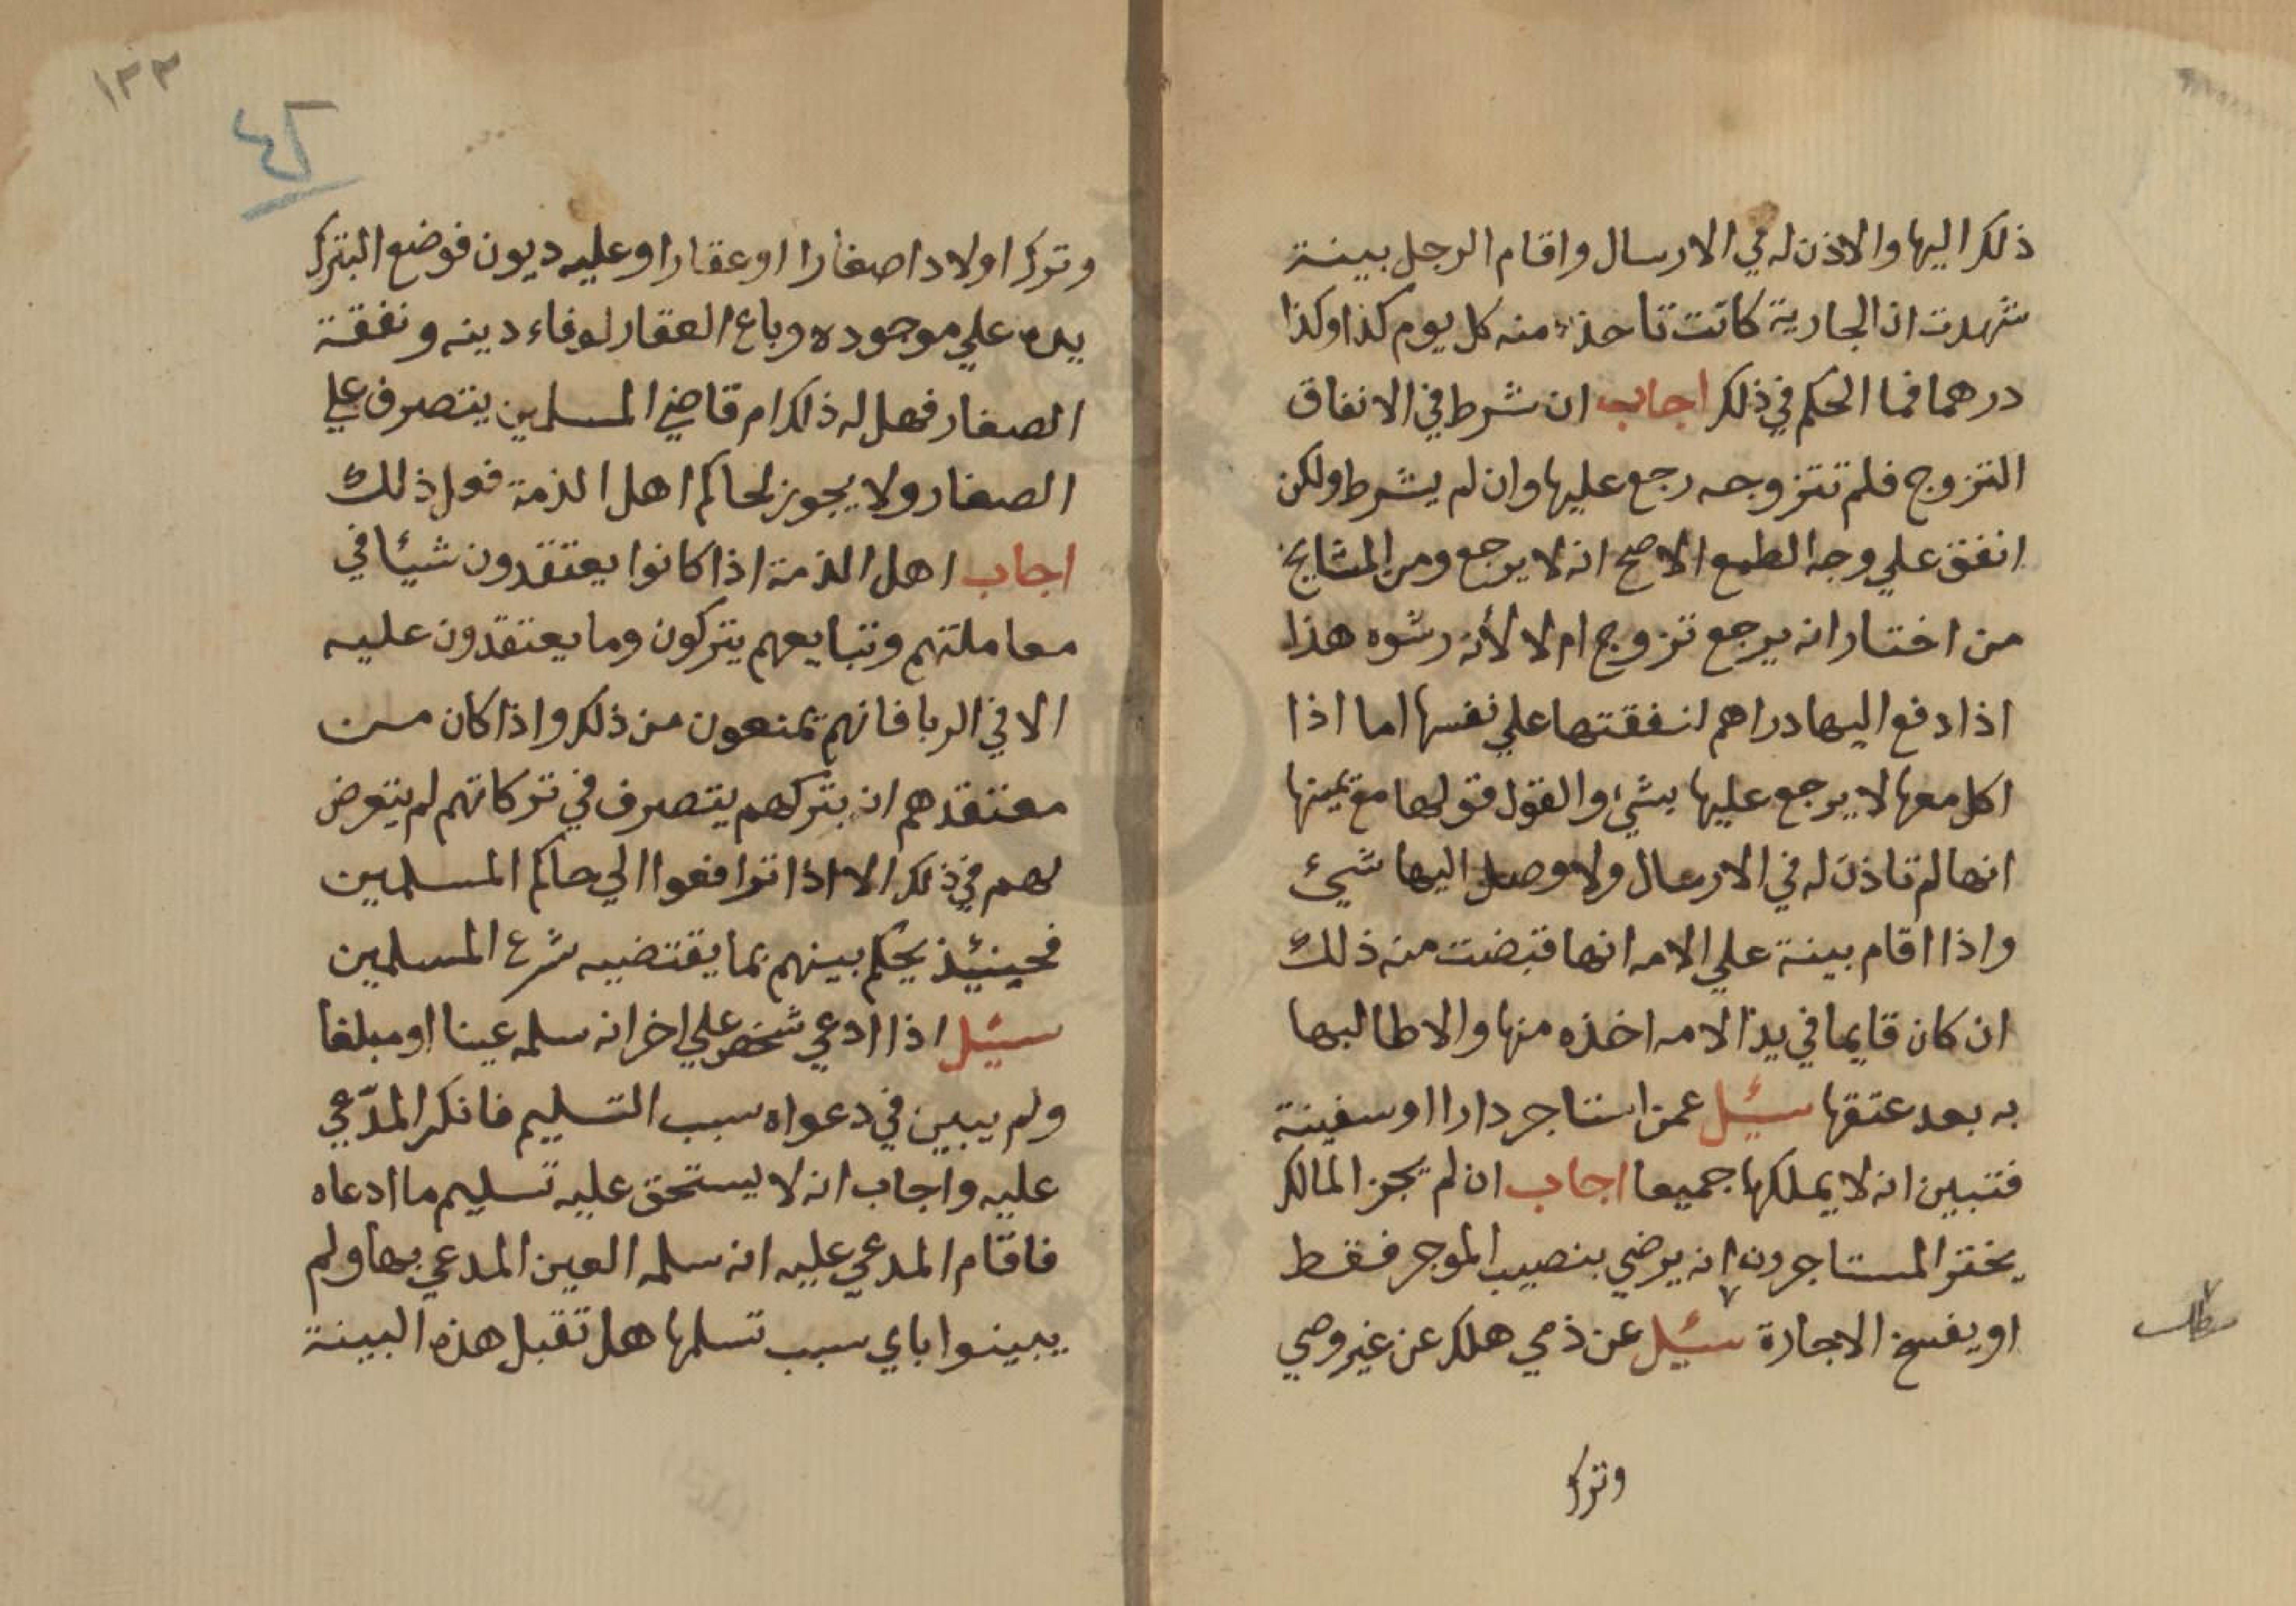 ذلك اليها والاذن له في الارسال واقام الرجل بينة
شهدت ان الجارية كانت تاخذ منه كل يوم كذا وكذا
درهما فما الحكم في ذلك اجاب ان شرط في الانفاق
التزوج فلم تتزوجه رجع عليها وان لم يشرط ولكن
انفق علي وجه الطمع الاصح انه لا يرجع ومن المشايخ
من اختار انه يرجع تزوج ام لا لأنه رشوه هذا
اذا دفع اليها دراهم لنفقتها علي نفسها اما اذا
اكل معها لا يرجع عليها بشيء والقول قولها مع يمينها
انها لم تاذن له في الارسال ولا وصل اليها شيء
واذا اقام بينة علي الامه انها قبضت منه ذلك
ان كان قايما في يد الامه اخذه منها والا طالبها
به بعد عتقها سئيل عمن استاجر دارا او سفينة
فتبين انه لا يملكها جميعا اجاب ان لم يجز المالك
يختر المستاجرون انه يرضي بنصيب الموجر فقط
او يفسخ الاجارة سئيل عن ذمي هلك عن غير وصي
مطلب
وترك
١٣٣
٤٢
وترك اولادا صغارا او عقارا وعليه ديون فوضع البترك
يده علي موجوده وباع العقار لوفاء دينه ونفقة
الصغار فهل له ذلك ام قاضي المسلمين يتصرف علي
الصغار ولا يجوز لحاكم اهل الذمة فعل ذلك
اجاب اهل الذمة اذا كانوا يعتقدون شيئا في
معاملتهم وتبايعهم يتركون وما يعتقدون عليه
الا في الربا فانهم يمنعون من ذلك واذا كان من
معتقدهم ان بتركهم يتصرف في تركاتهم لم يتعرض
لهم في ذلك الا اذا ترافعوا الي حاكم المسلمين
فحينئيذ يحكم بينهم بما يقتضيه شرع المسلمين
سئيل اذا ادعي شخص علي اخر انه سلمه عينا او مبلغا
ولم يبين في دعواه سبب التسليم فانكر المدّعي
عليه واجاب انه لا يستحق عليه تسليم ما ادعاه
فاقام المدعي عليه انه سلمه العين المدعي بها ولم
يبينوا باي سبب تسلمها هل تقبل هذه البينة